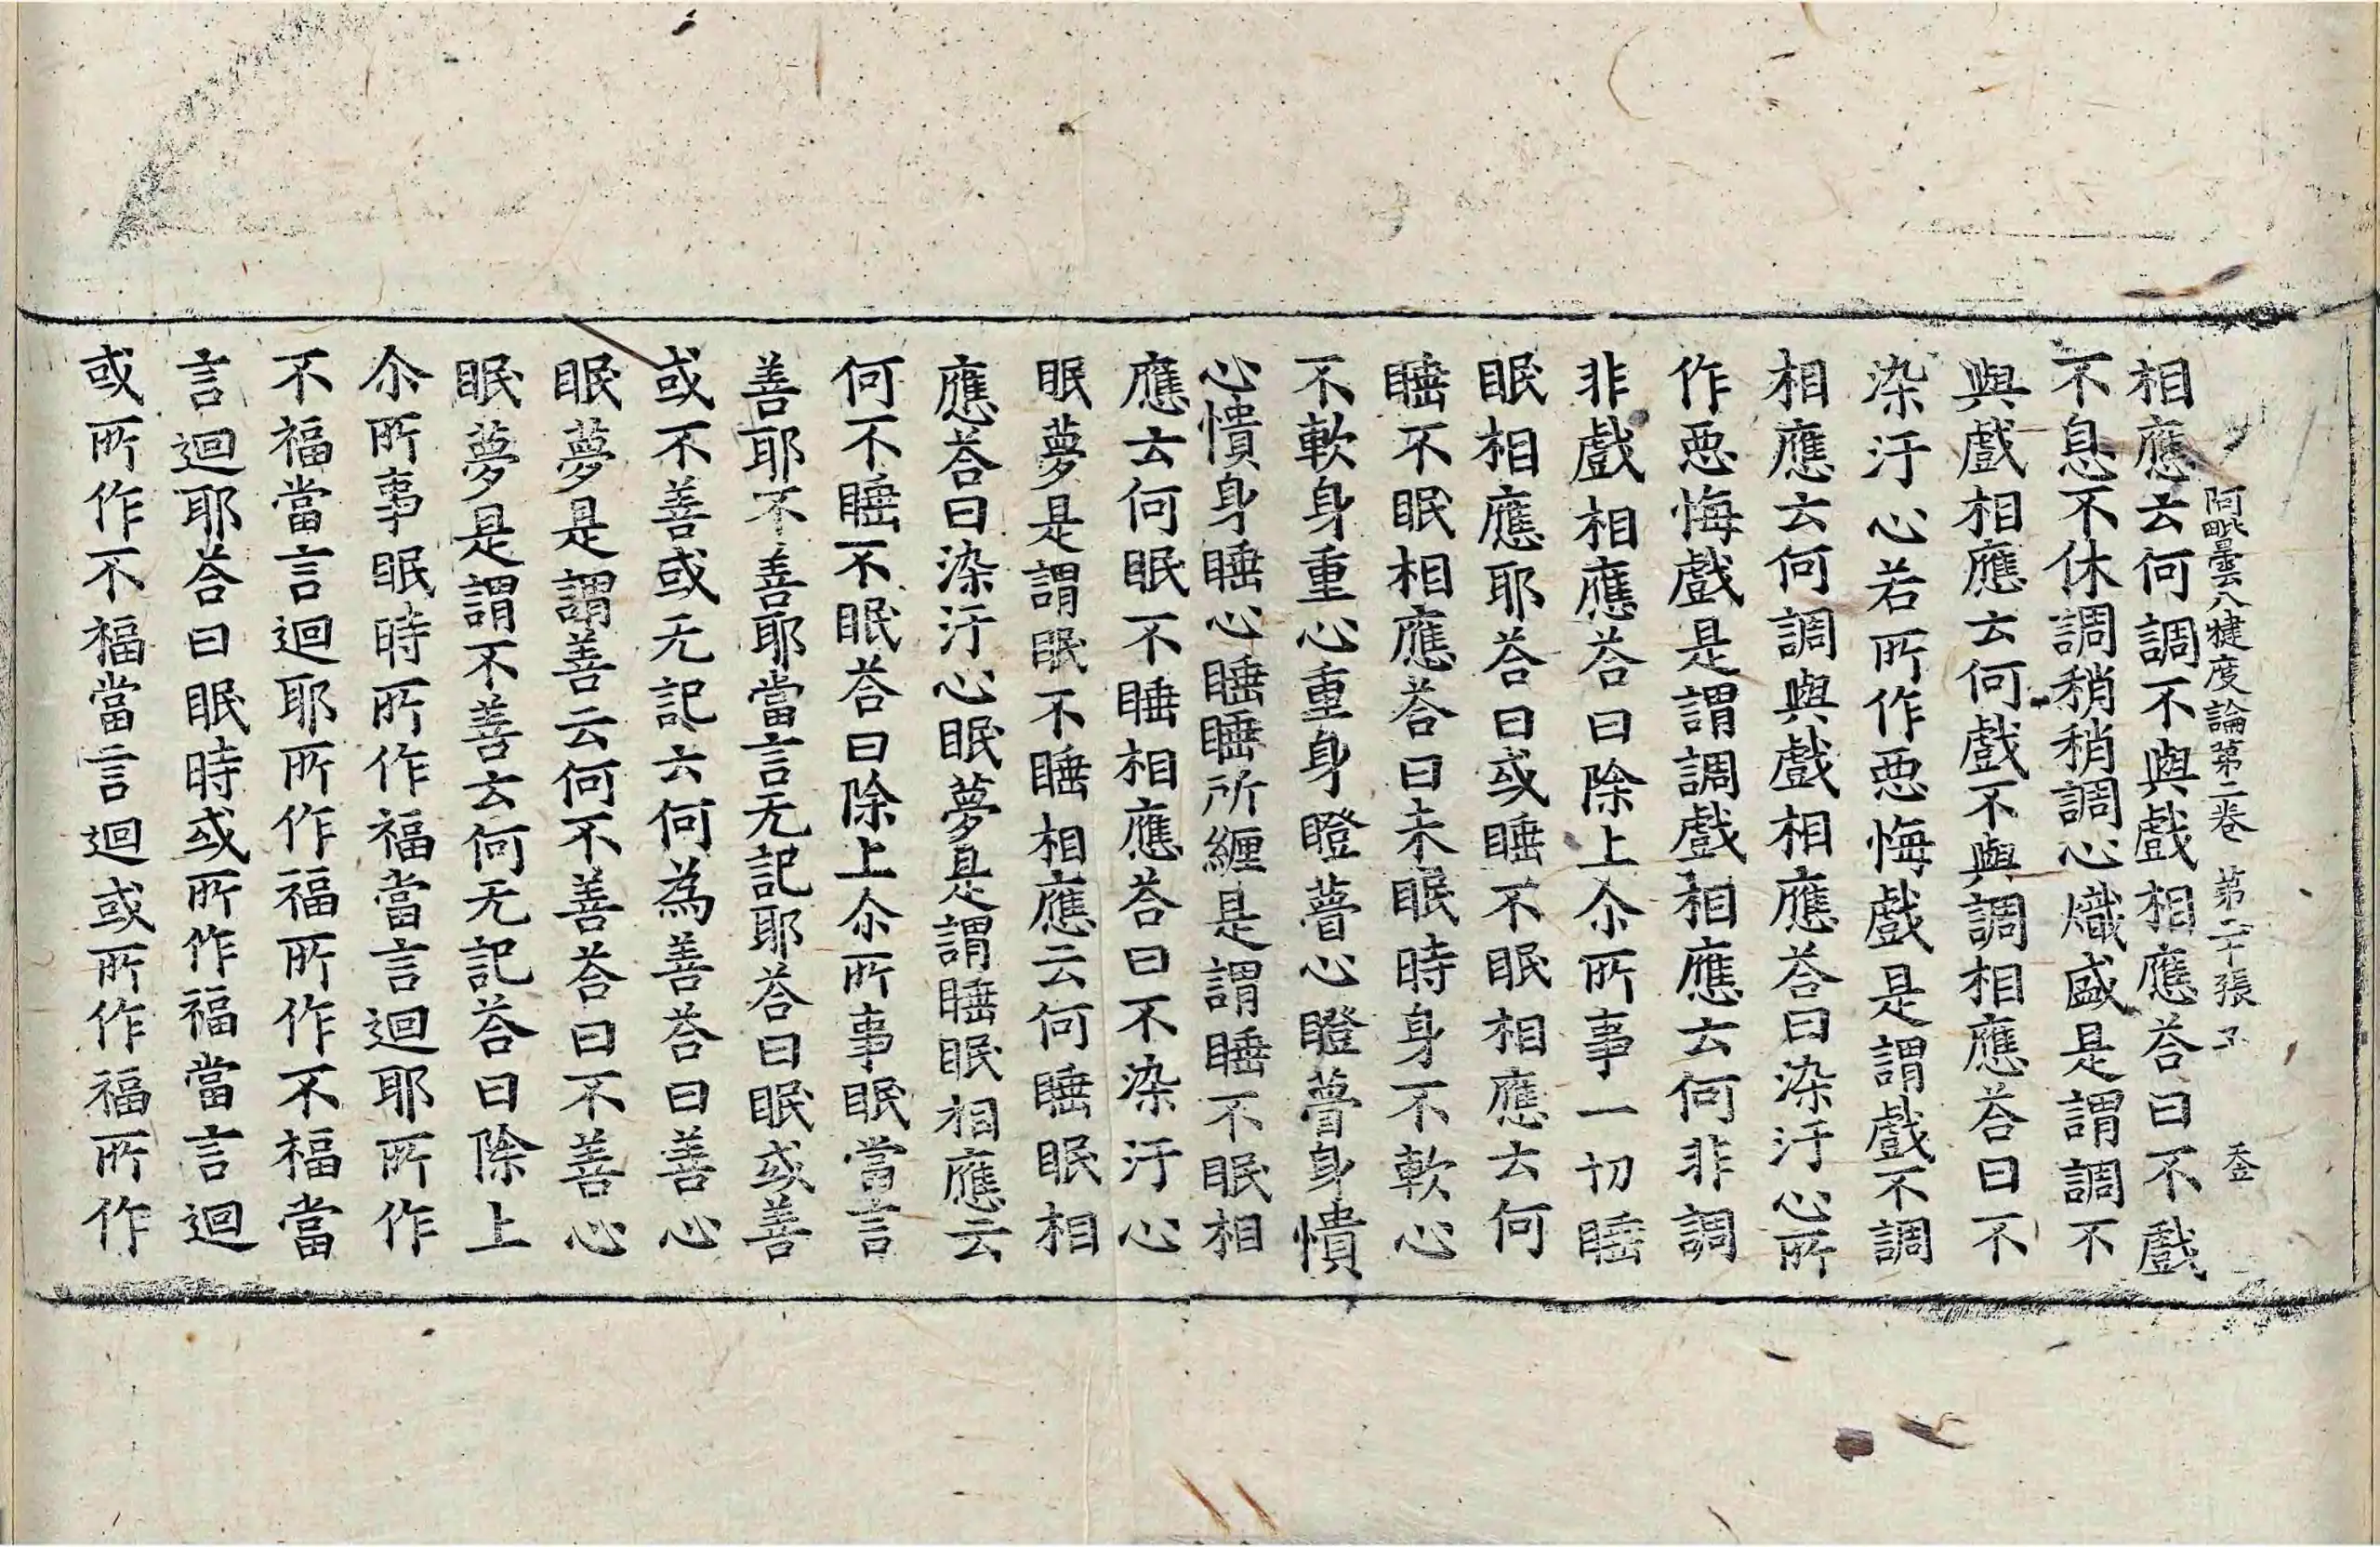 阿毗曇八犍度論第二卷 第二十張 禾金
相應云何調不與戲相應荅曰不戲
不息不休調稍稍調心熾盛是謂調不
與戲相應云何戲不與調相應荅曰不
染汙心若所作惡悔戲是謂戲不調
相應云何調與戲相應荅曰染汙心所
作惡悔戲是謂調戲相應云何非調
非戲相應荅曰除上尒所事一切睡
眠相應耶荅曰或睡不眠相應云何
睡不眠相應荅曰未眠時身不軟心
不軟身重心重身瞪瞢心瞪瞢身憒
心憒身睡心睡睡所纏是謂睡不眠相
應云何眠不睡相應荅曰不染汙心
眠夢是謂眠不睡相應云何睡眠相
應荅曰染汙心眠夢是謂睡眠相應云
何不睡不眠荅曰除上尒所事眠當言
善耶不善耶當言无記耶荅曰眠或善
或不善或无記云何為善荅曰善心
眠夢是謂善云何不善荅曰不善心
眠夢是謂不善云何无記荅曰除上
尒所事眠時所作福當言迴耶所作
不福當言迴耶所作福所作不福當
言迴耶荅曰眠時或所作福當言迴
或所作不福當言迴或所作福所作